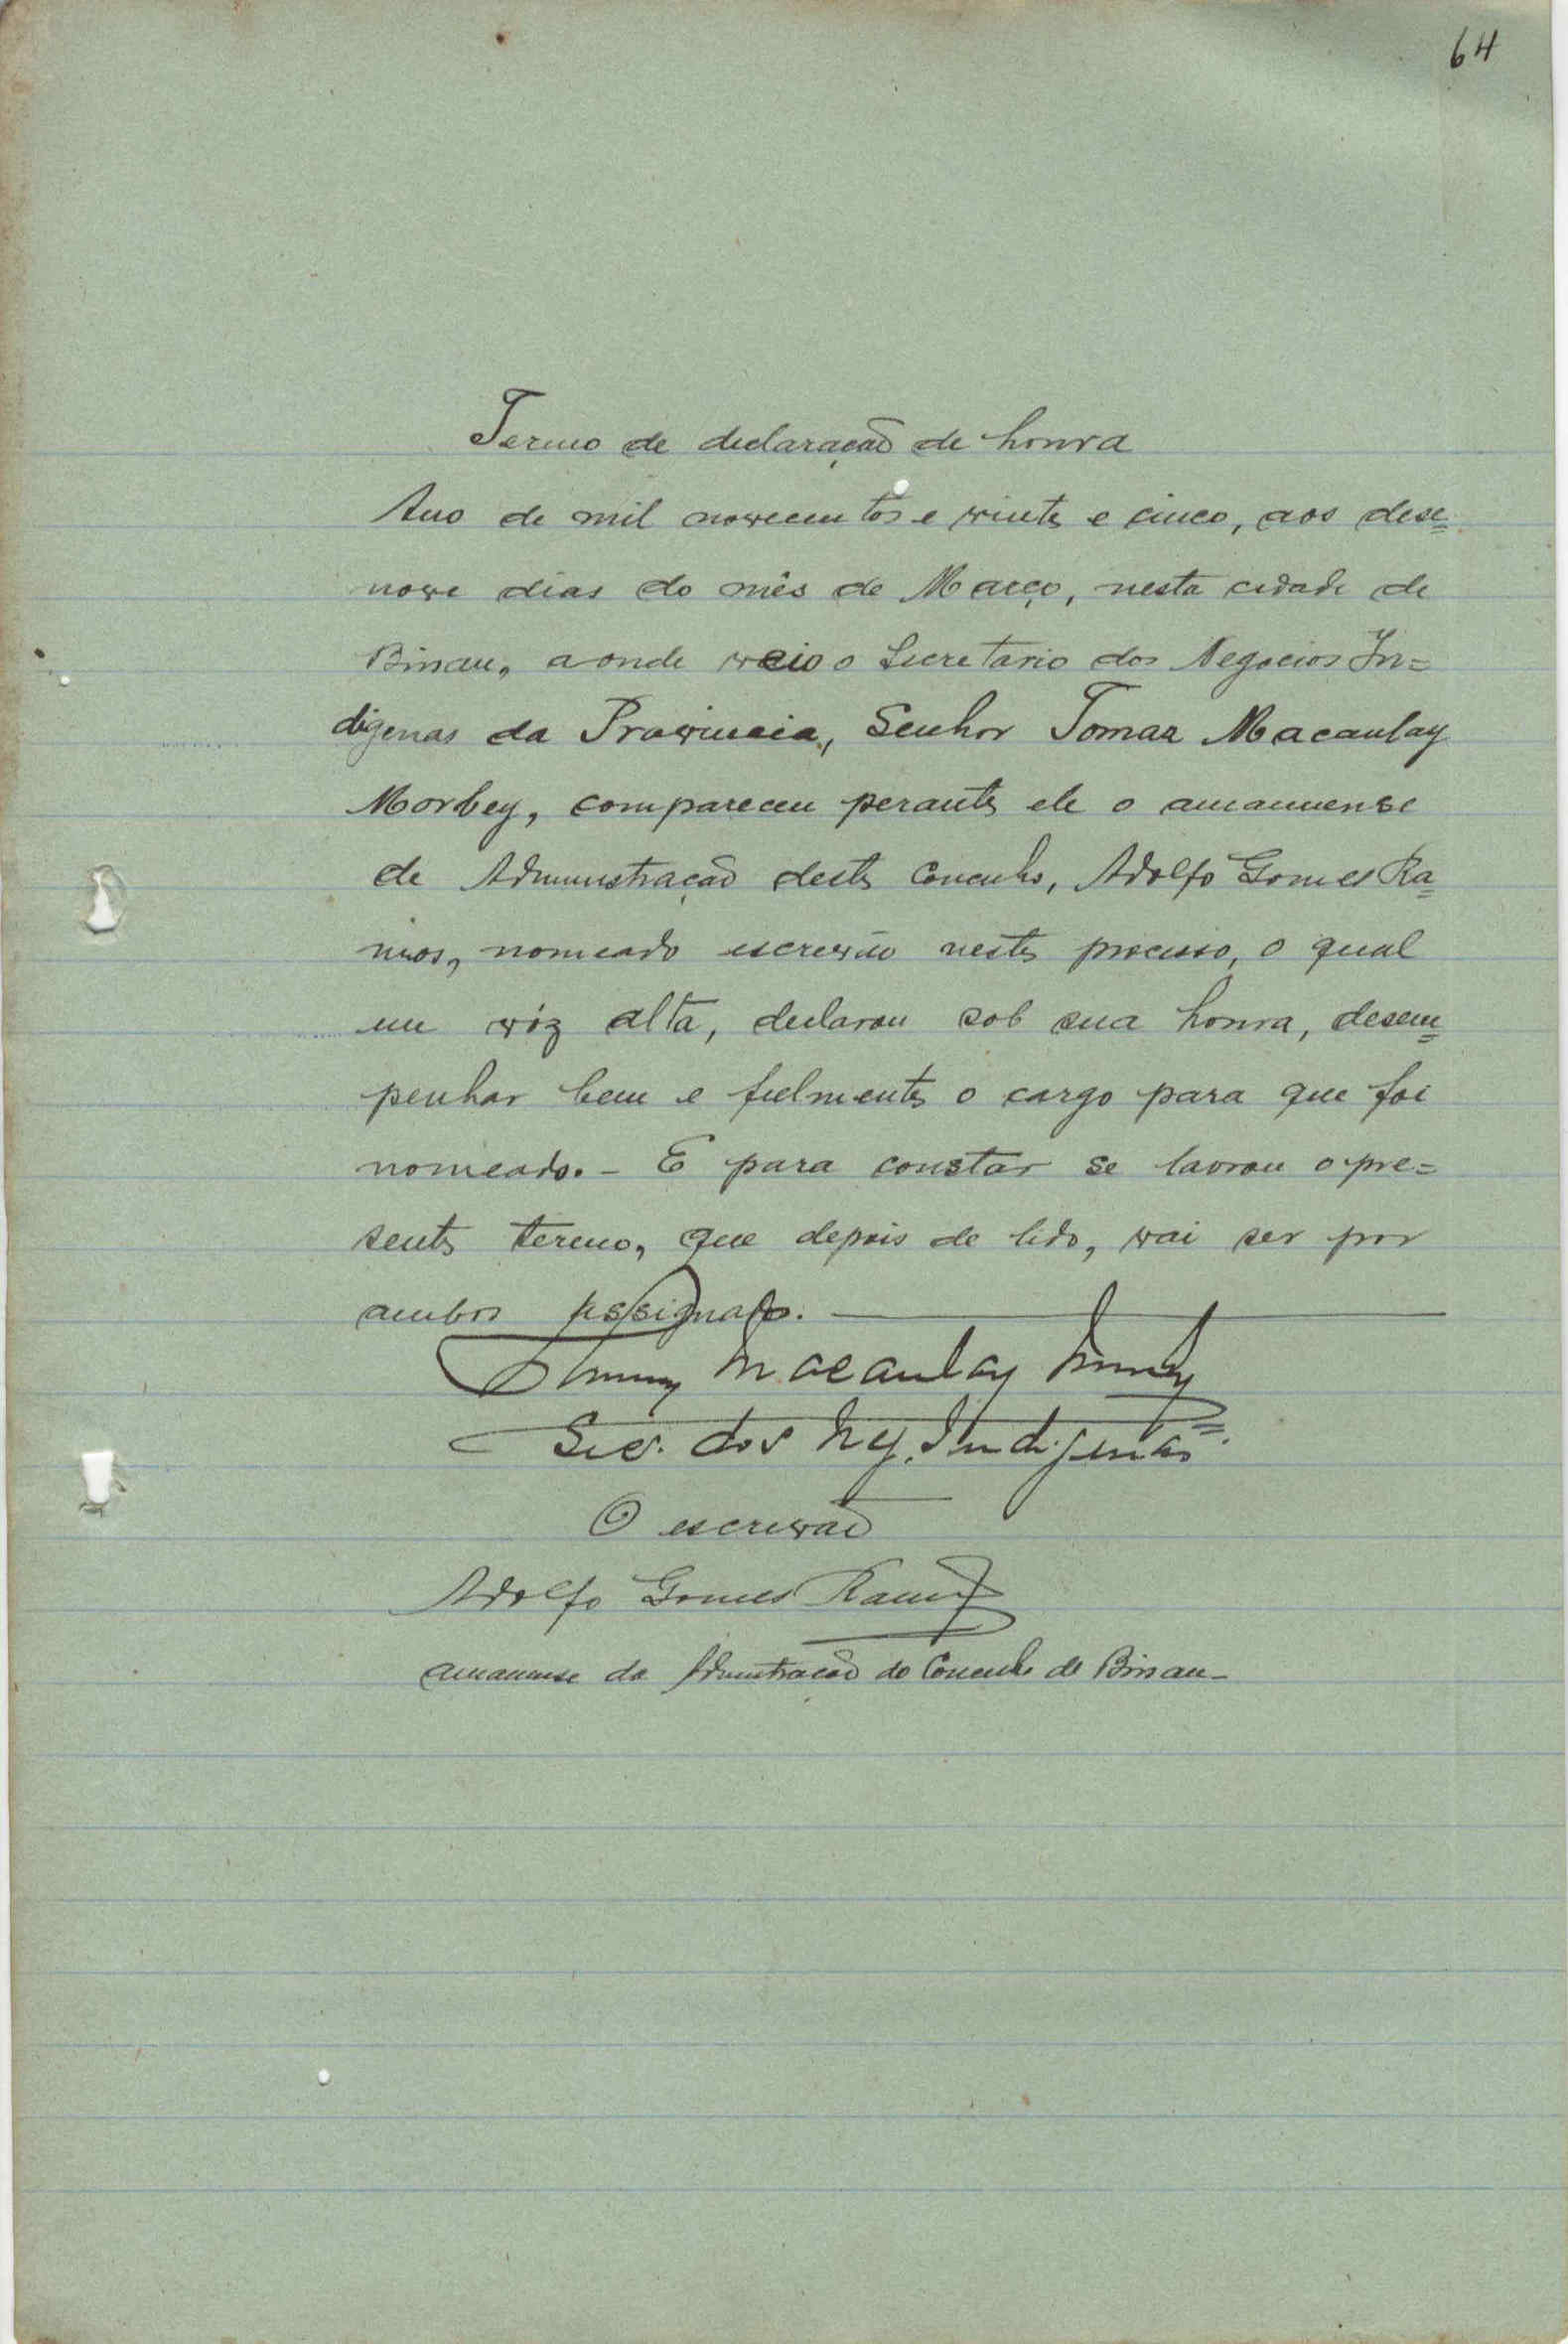 64
Termo de declaração de honra
Ano de mil novecentos e vinte e cinco, aos dese=
nove dias do mês de Março, nesta cidade de
Bissau, aonde veio o Secretario dos Negocios In=
digenas da Provincia, Senhor Tomaz Macaulay
Morbey, compareceu perante ele o amanuense
de Administração deste Concelho, Adolfo Gomes Ra=
mos, nomeado escrivão neste processo, o qual
em vóz alta, declarou sob sua honra, desem=
penhar bem e fielmente o cargo para que foi
nomeado. - E para constar se lavrou o pre=
sente termo, que depois de lido, vai ser por
ambos assignado.
Macaulay
Sec. dos Neg. Indigenas
O escrivão
Adolfo Gomes Ramos
amanuense da Administração do Concelho de Bissau -